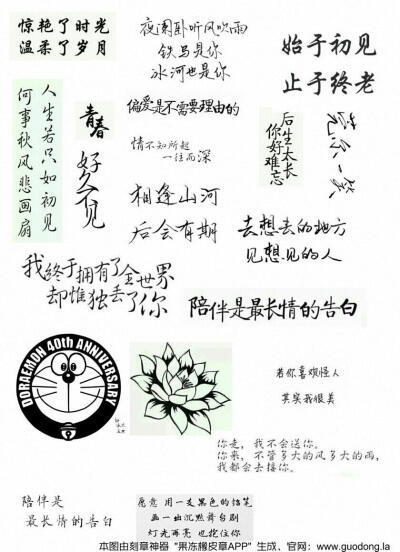 惊艳了时光
温柔了岁月
夜阑卧听风吹雨
铁马是你
冰河也是你
始于初见
止于终老
人生若只如初见
何事秋风悲画扇
青春
好久不见
偏爱是不需要理由的
情不知所起
一往而深
后生太长
你好难忘
相逢山河
后会有期
去想去的地方
见想见的人
我终于拥有了全世界
却惟独丢了你
陪伴是最长情的告白
DORAEMON 40th ANNIVERSARY
若你喜欢怪人
其实我很美
你走，我不会送你。
你来，不管多大的风多大的雨，
我都会去接你。
陪伴是
最长情的告白
愿意 用一支黑色的铅笔
画一曲沉默舞台剧
灯光再亮 也抱住你
本图由刻章神器 "果冻橡皮章APP" 生成，官网：www.guodong.la